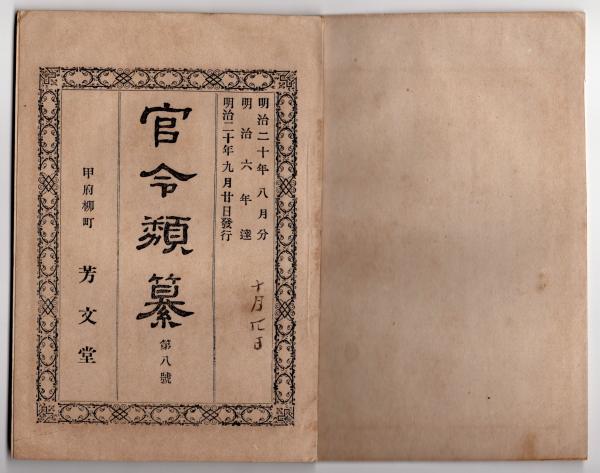 明治二十年八月分
明治六年達
明治二十年九月廿日發行
十月
官令類纂
第八號
甲府柳町
芳文堂